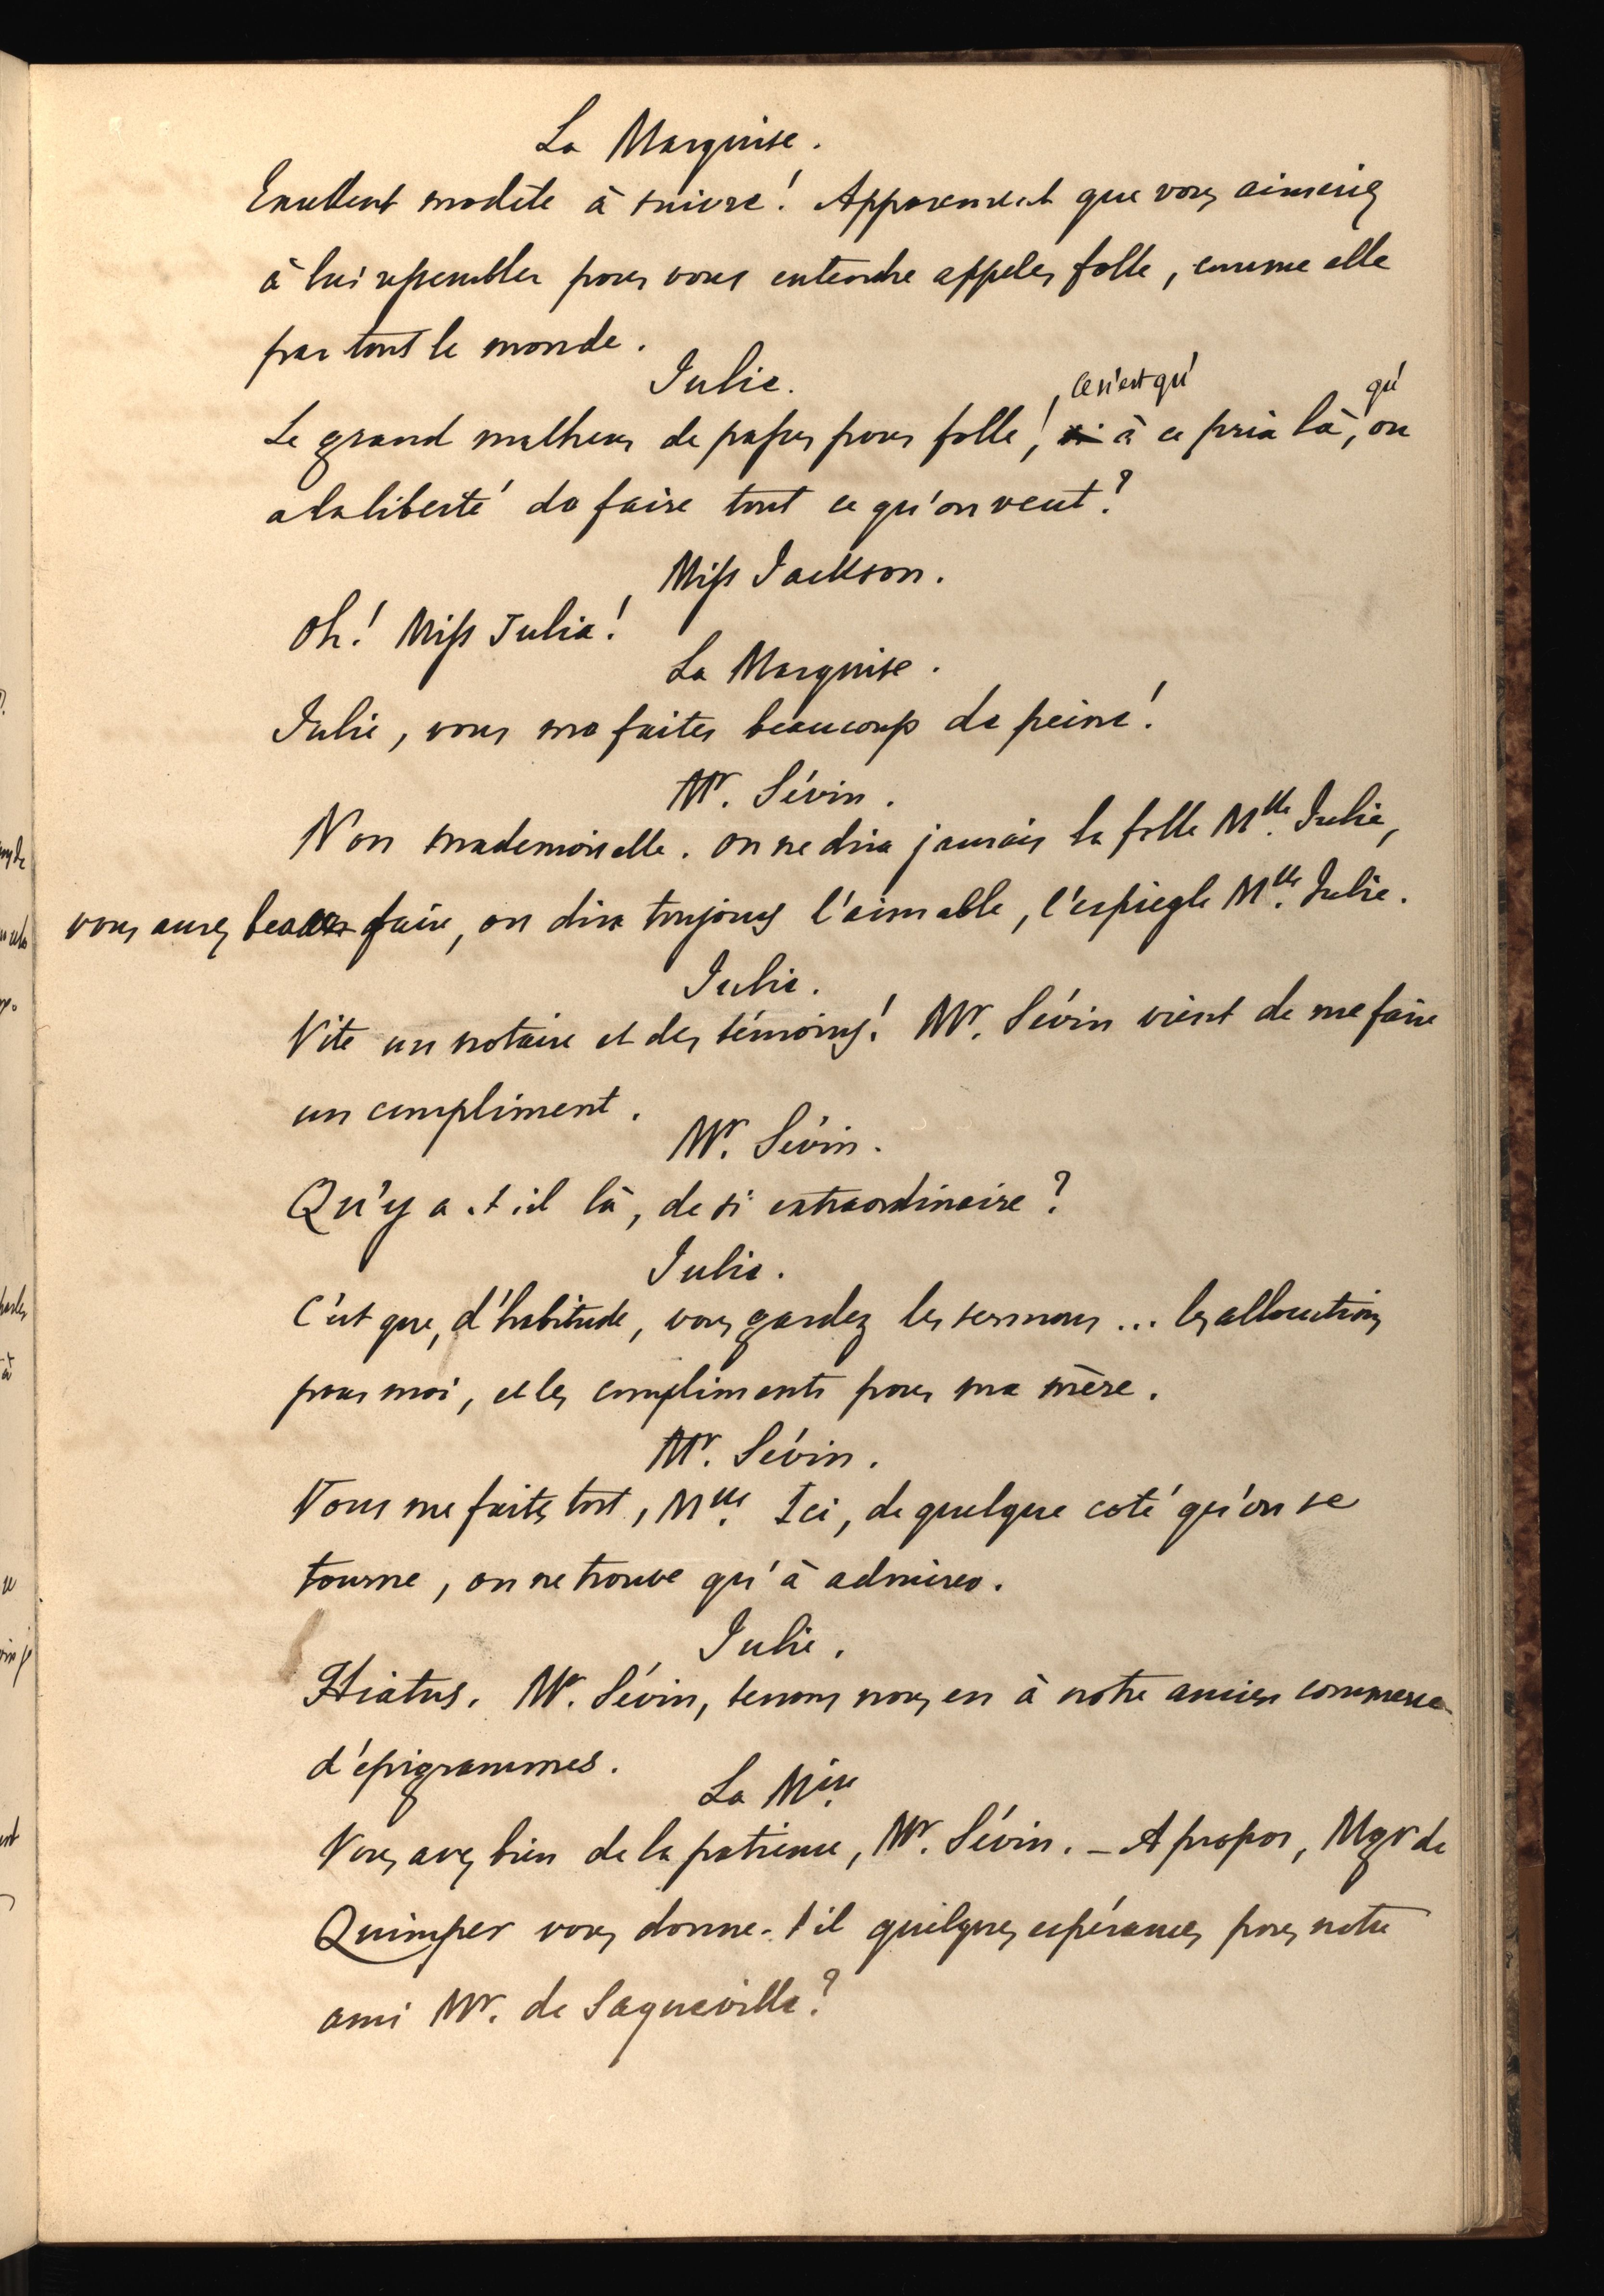 La Marquise.
Excellent modèle à suivre! Apparemment que vous aimeriez
à lui ressembler pour vous entendre appeler folle, comme elle
par tout le monde.
Julie.
Le grand malheur de passer pour folle!, ce n'est qu'à ce prix là, qu'on
a la liberté de faire tout ce qu'on veut?
Miss Jackson.
Oh! Miss Julia!
La Marquise.
Julie, vous me faites beaucoup de peine!
Mr. Sévin.
Non mademoiselle. on ne dira jamais la folle Mlle. Julie,
vous aurez beau faire, on dira toujours l'aimable, l'espiègle Mlle. Julie.
Julie.
Vite un notaire et des témoins! Mr. Sévin vient de me faire
un compliment.
Mr. Sévin.
Qu'y a-t-il là, de si extraordinaire?
Julie.
C'est que, d'habitude, vous gardez les sermons... les allocutions
pour moi, et les compliments pour ma mère.
Mr. Sévin.
Vous me faites tort, Mlle. Ici, de quelque coté qu'on se
tourne, on ne trouve qu'à admirer.
Julie.
Hiatus. Mr. Sévin, tenons nous en à notre ancien commerce
d'épigrammes.
La Mise.
Vous avez bien de la patience, Mr. Sévin. — A propos, Mgr de
Quimper vous donne-t'il quelques espérances pour notre
ami Mr. de Saqueville?